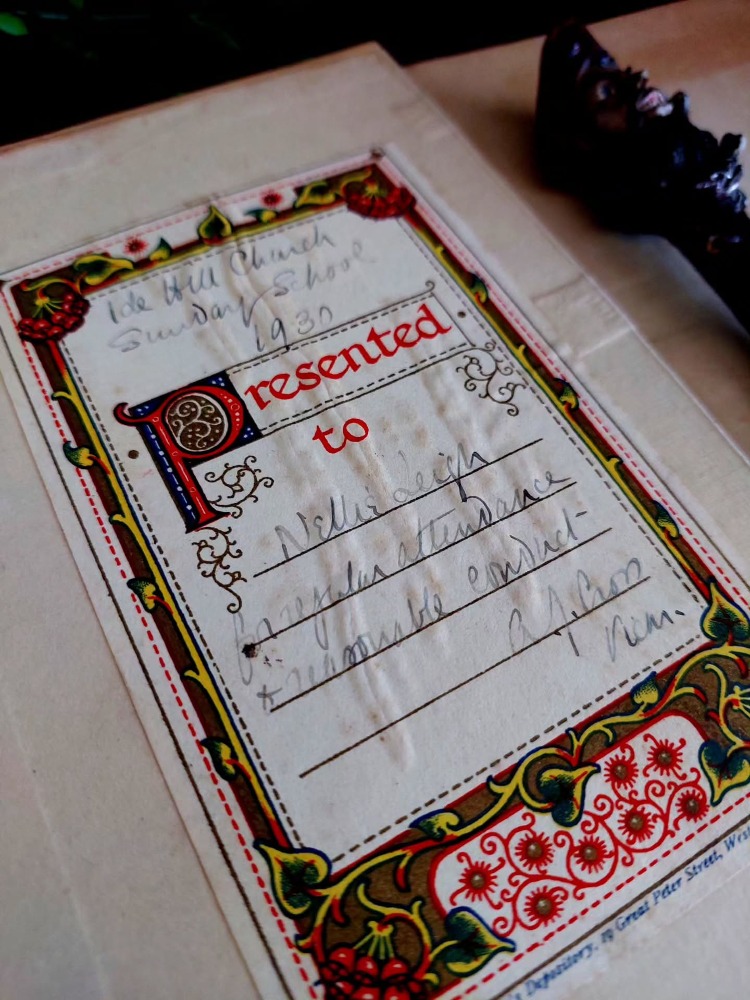 Ide Hill Church
Sunday School
1930
Presented
to
Nellie Leigh
for regular attendance
& reasonable conduct
Vicar.
Depository, 19 Great Peter Street,